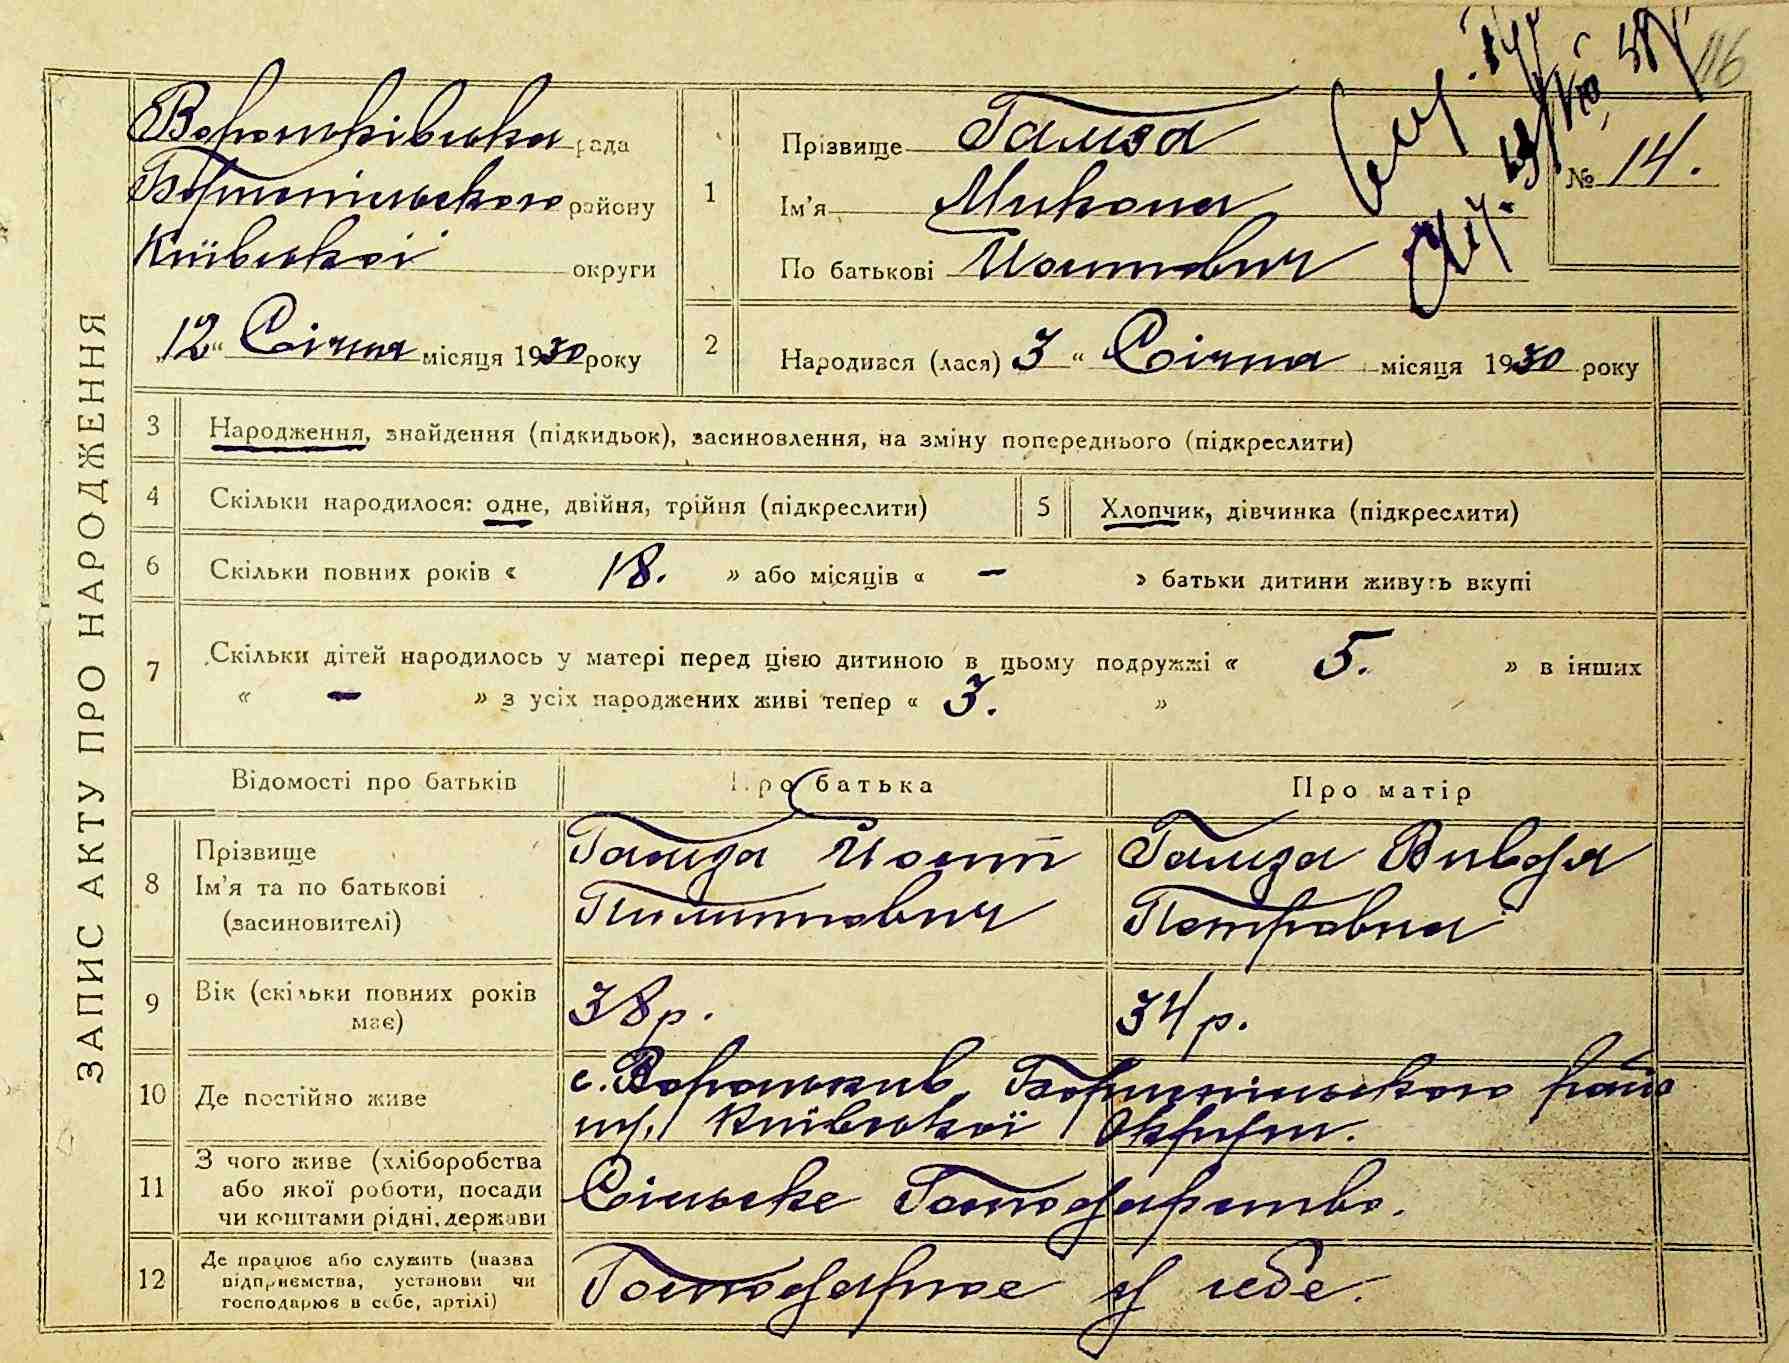 116
ЗАПИС АКТУ ПРО НАРОДЖЕННЯ
Вороньківська рада
Бориспільського району
Київської округи
„12“ Січня місяця 1930 року
1
Прізвище Гамза
Ім'я Микола
По батькові Йостович
№ 14.
2
Народився (лася) 3 “ Січня місяця 1930 року
3
Народження, знайдення (підкидьок), засиновлення, на зміну попереднього (підкреслити)
4
Скільки народилося: одне, двійня, трійня (підкреслити)
5
Хлопчик, дівчинка (підкреслити)
6
Скільки повних років « 18. » або місяців « – » батьки дитини живуть вкупі
7
Скільки дітей народилось у матері перед цією дитиною в цьому подружжі « 5. » в інших
« – » з усіх народжених живі тепер « 3. »
Відомості про батьків
Про батька
Про матір
8
Прізвище
Ім'я та по батькові
(засиновителі)
Гамза Йост
Пилипович
Гамза Вивдя
Петровна
9
Вік (скільки повних років
має)
38 р.
34 р.
10
Де постійно живе
с. Вороньків Бориспільського райо
ну, Київської Округи.
11
З чого живе (хліборобства
або якої роботи, посади
чи коштами рідні, держави
Сільське Господарство.
12
Де працює або служить (назва
підприємства, установи чи
господарює в себе, артілі)
Господарює у себе.